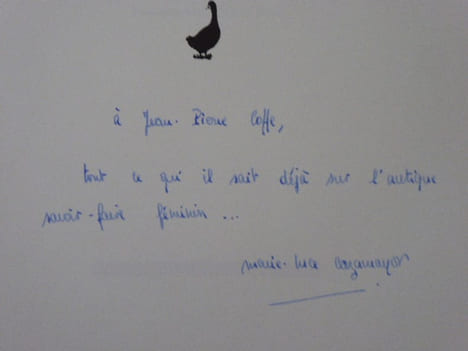 à Jean-Pierre Coffe,
tout ce qu'il sait déjà sur l'antique
savoir-faire féminin ...
Marie-Luce Cazamayou